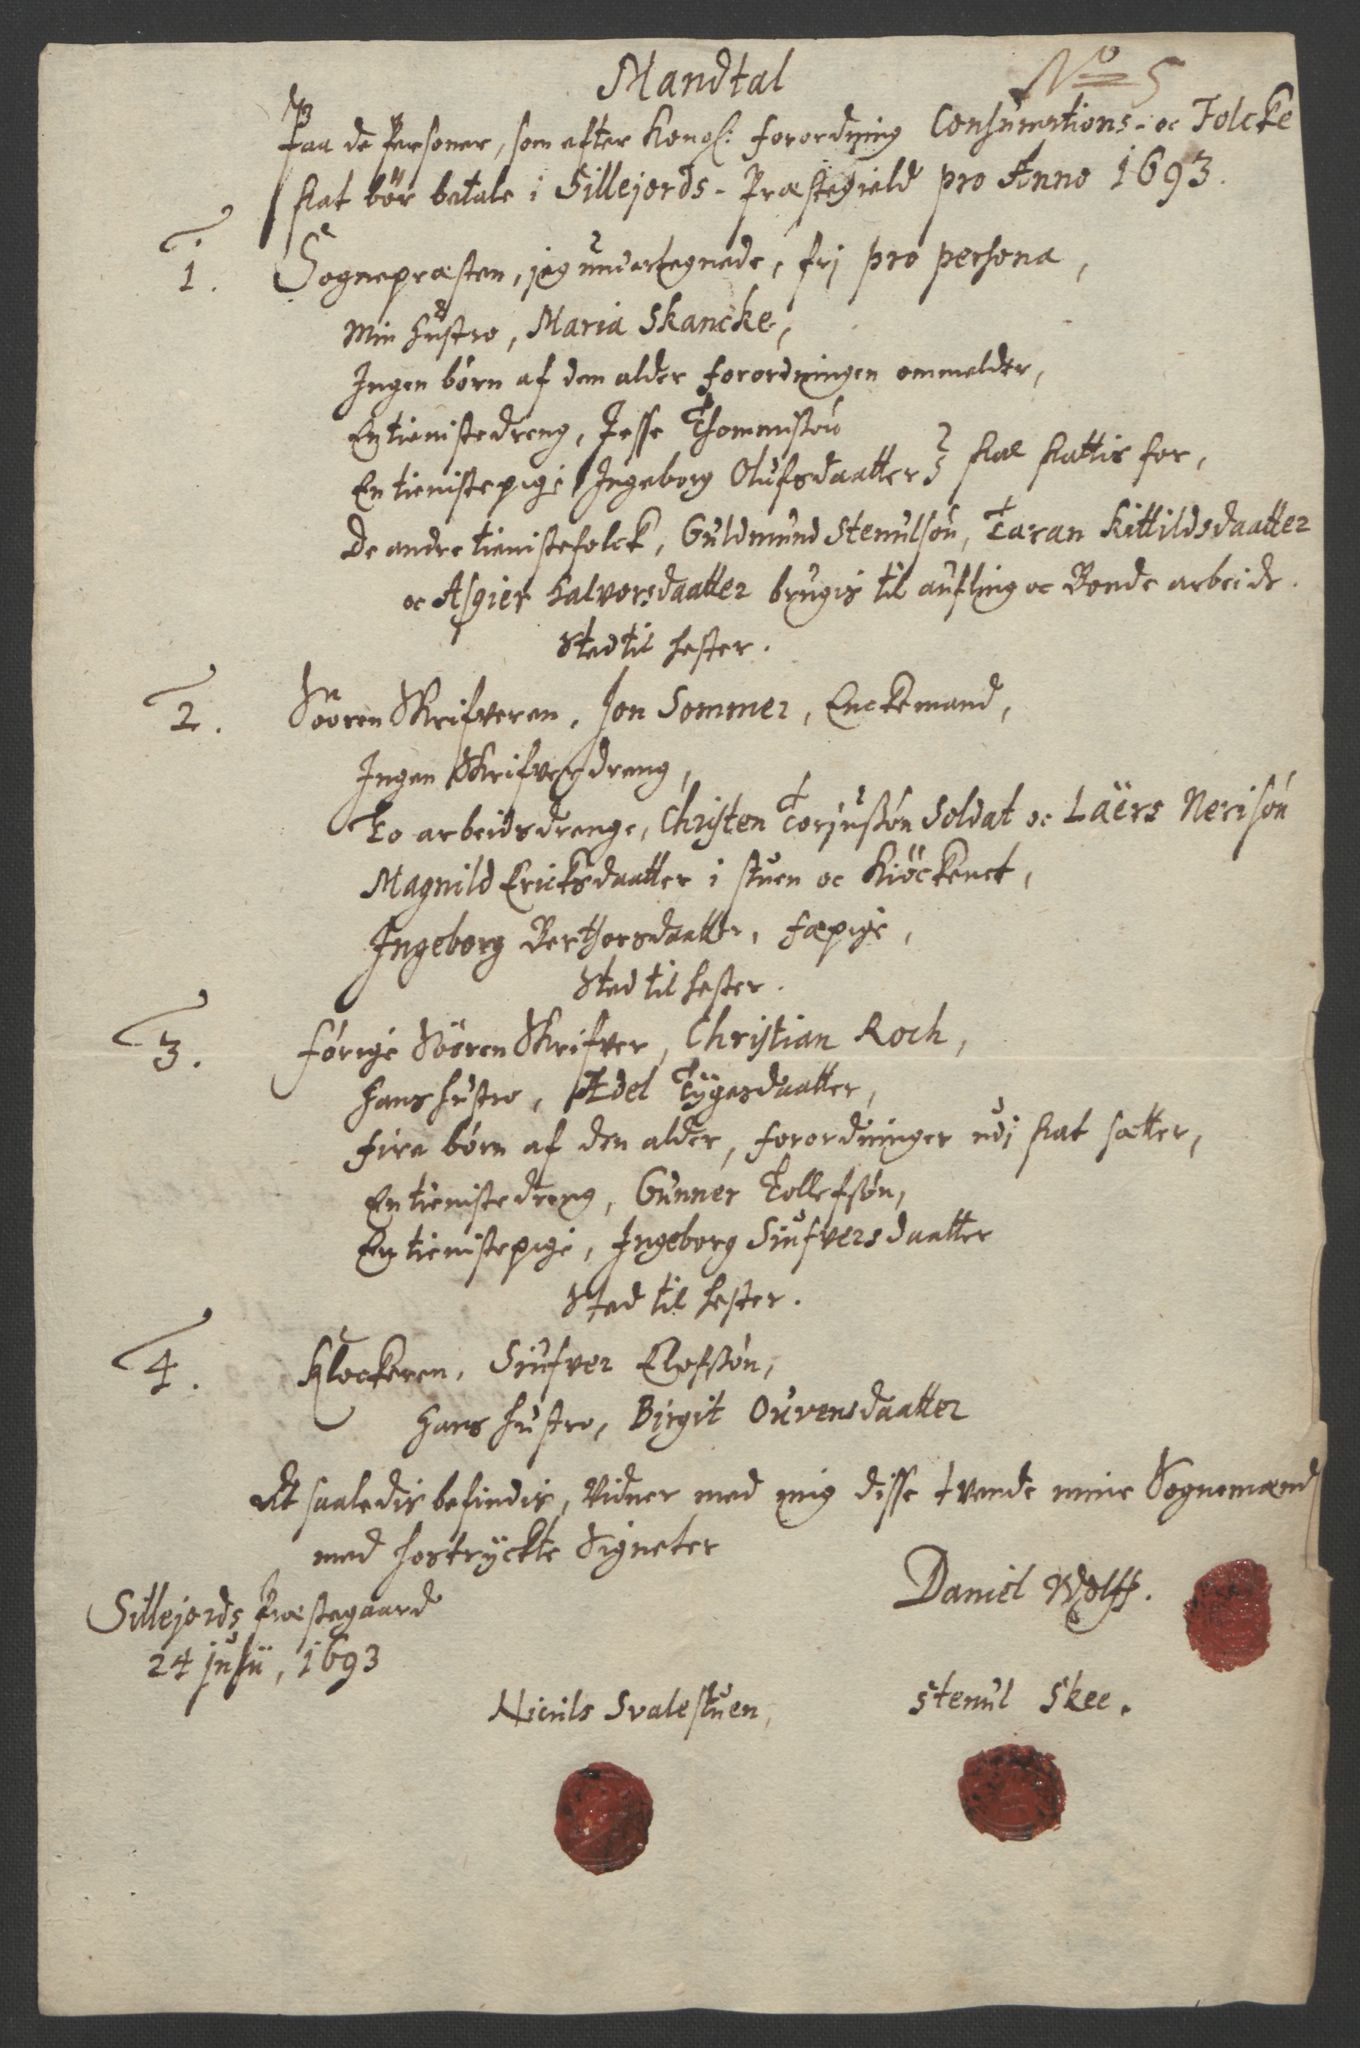 Mandtal
No 5
Paa de Personer, som efter Kongl: forordning Consumtions- oc Folcke
skat bör betale i Sillejords-Præstegield pro Anno 1693.
1. Sognepræsten, jeg undertegnede, frj pro persona,
Min hustro, Maria Skancke,
Ingen börn af dem alder forordningen ommelder,
En tienistedreng, Jesse Thommissön
En tienistepige, Ingeborg Olufsdaatter } skal skattis for,
De andre tienistefolck, Guldmund Stenulsön, Taran Kittildsdaatter
oc Asgier Halvorsdaatter brugis til aufling oc Bonde arbeide.
Sted til hester.
2. Sooren Skrifveren, Jon Sommer, Enckemand,
Ingen Skrifverdreng,
To arbeidsdrenge, Christen Torjussön Soldat oc Läers Nerisön
Magnild Ericksdaatter i stuen oc Kiöckenet,
Ingeborg Berthorsdaatter, fæpige,
Sted til hester.
3. förige Sooren Skrifver, Christian Roch,
Hans hustro, Adel Tygesdaatter,
Fire börn af den alder, forordninger udj skat sætter,
En tienistedreng, Gunner Tollefsön,
En tienistepige, Ingeborg Siufversdaatter
Sted til hester.
4. Klockeren, Siufver Elofssön,
Hans hustro, Birgit Ouvensdaatter
At saaledis befindis, vidner med mig disse tvende mine Sognemænd
med hostryckte Signeter
Daniel Wolff.
Sillejords Præstegaard
24 julii, 1693
Niculs Svalestuen,
Stenul Skee.